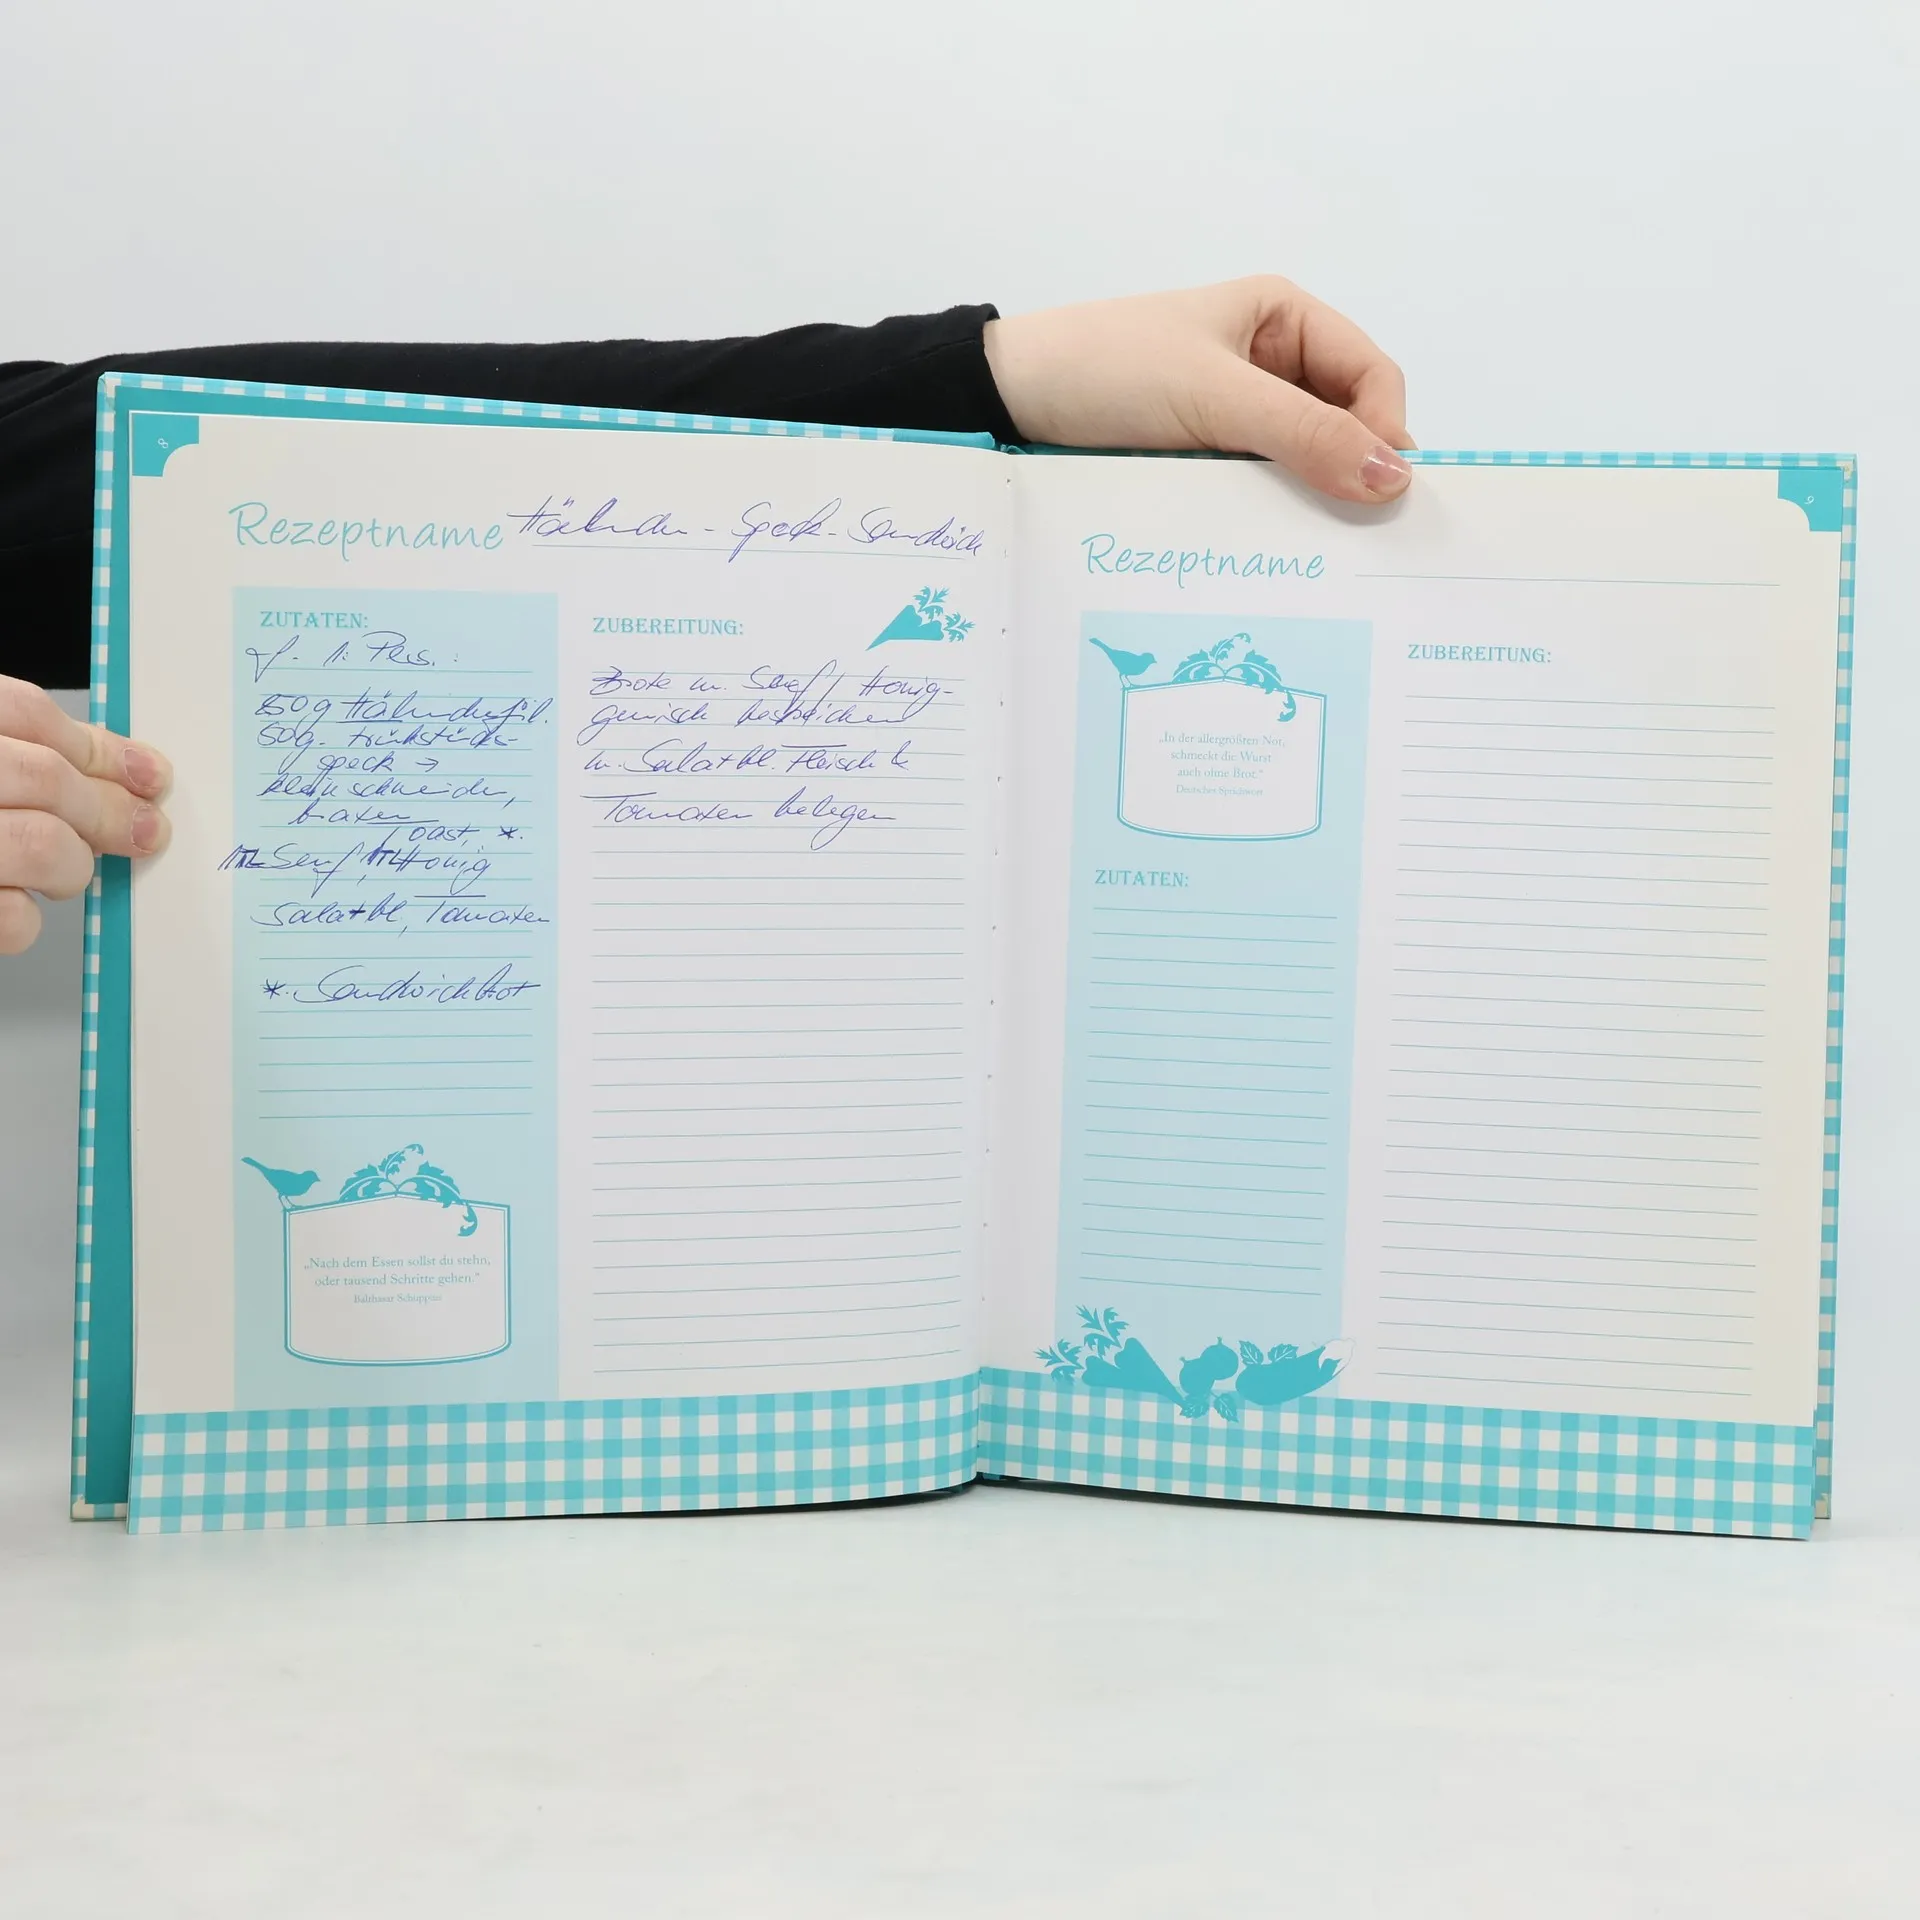 8
Rezeptname Hähnchen-Speck-Sandwich
ZUTATEN:
f. 1 Pers.:
50g Hähnchenfil.
50g Frühstücks-
speck →
klein schneiden,
braten
Toast, *.
1TL Senf, 1TL Honig
Salatbl., Tomaten
*. Sandwichbrot
„Nach dem Essen sollst du stehn,
oder tausend Schritte gehen.“
Balthasar Schuppius
ZUBEREITUNG:
Brote m. Senf / Honig-
gemisch bestreichen
m. Salatbl. Fleisch &
Tomaten belegen
9
Rezeptname
„In der allergrößten Not,
schmeckt die Wurst
auch ohne Brot.“
Deutsches Sprichwort
ZUTATEN:
ZUBEREITUNG: